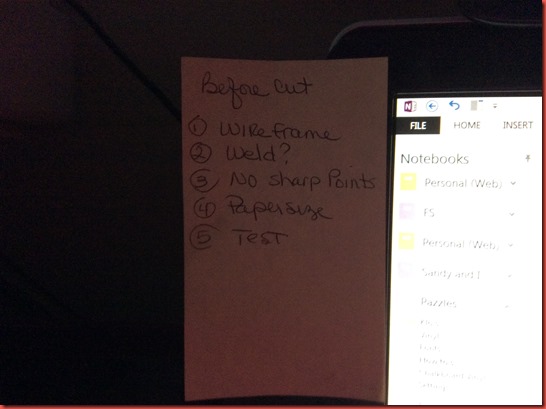 Before Cut
① Wireframe
② Weld?
③ No sharp Points
④ Papersize
⑤ Test
FILE HOME INSERT
Notebooks
Personal (Web)
FS
Personal (Web)
Sandy and
Pazzles